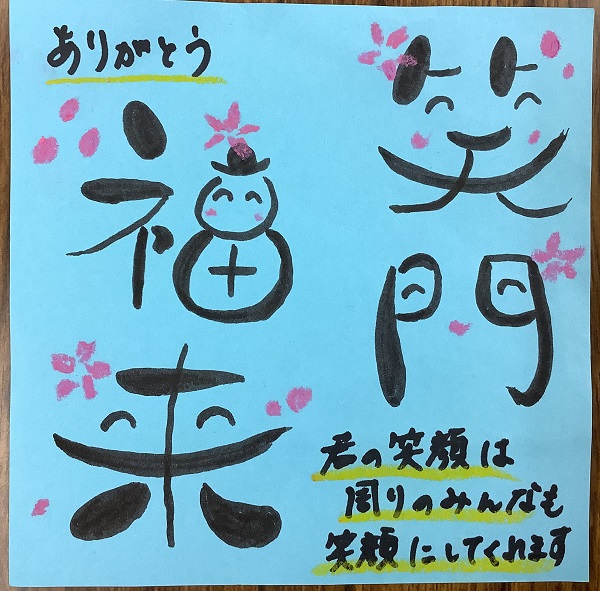 笑門
福来
ありがとう
君の笑顔は
周りのみんなも
笑顔にしてくれます